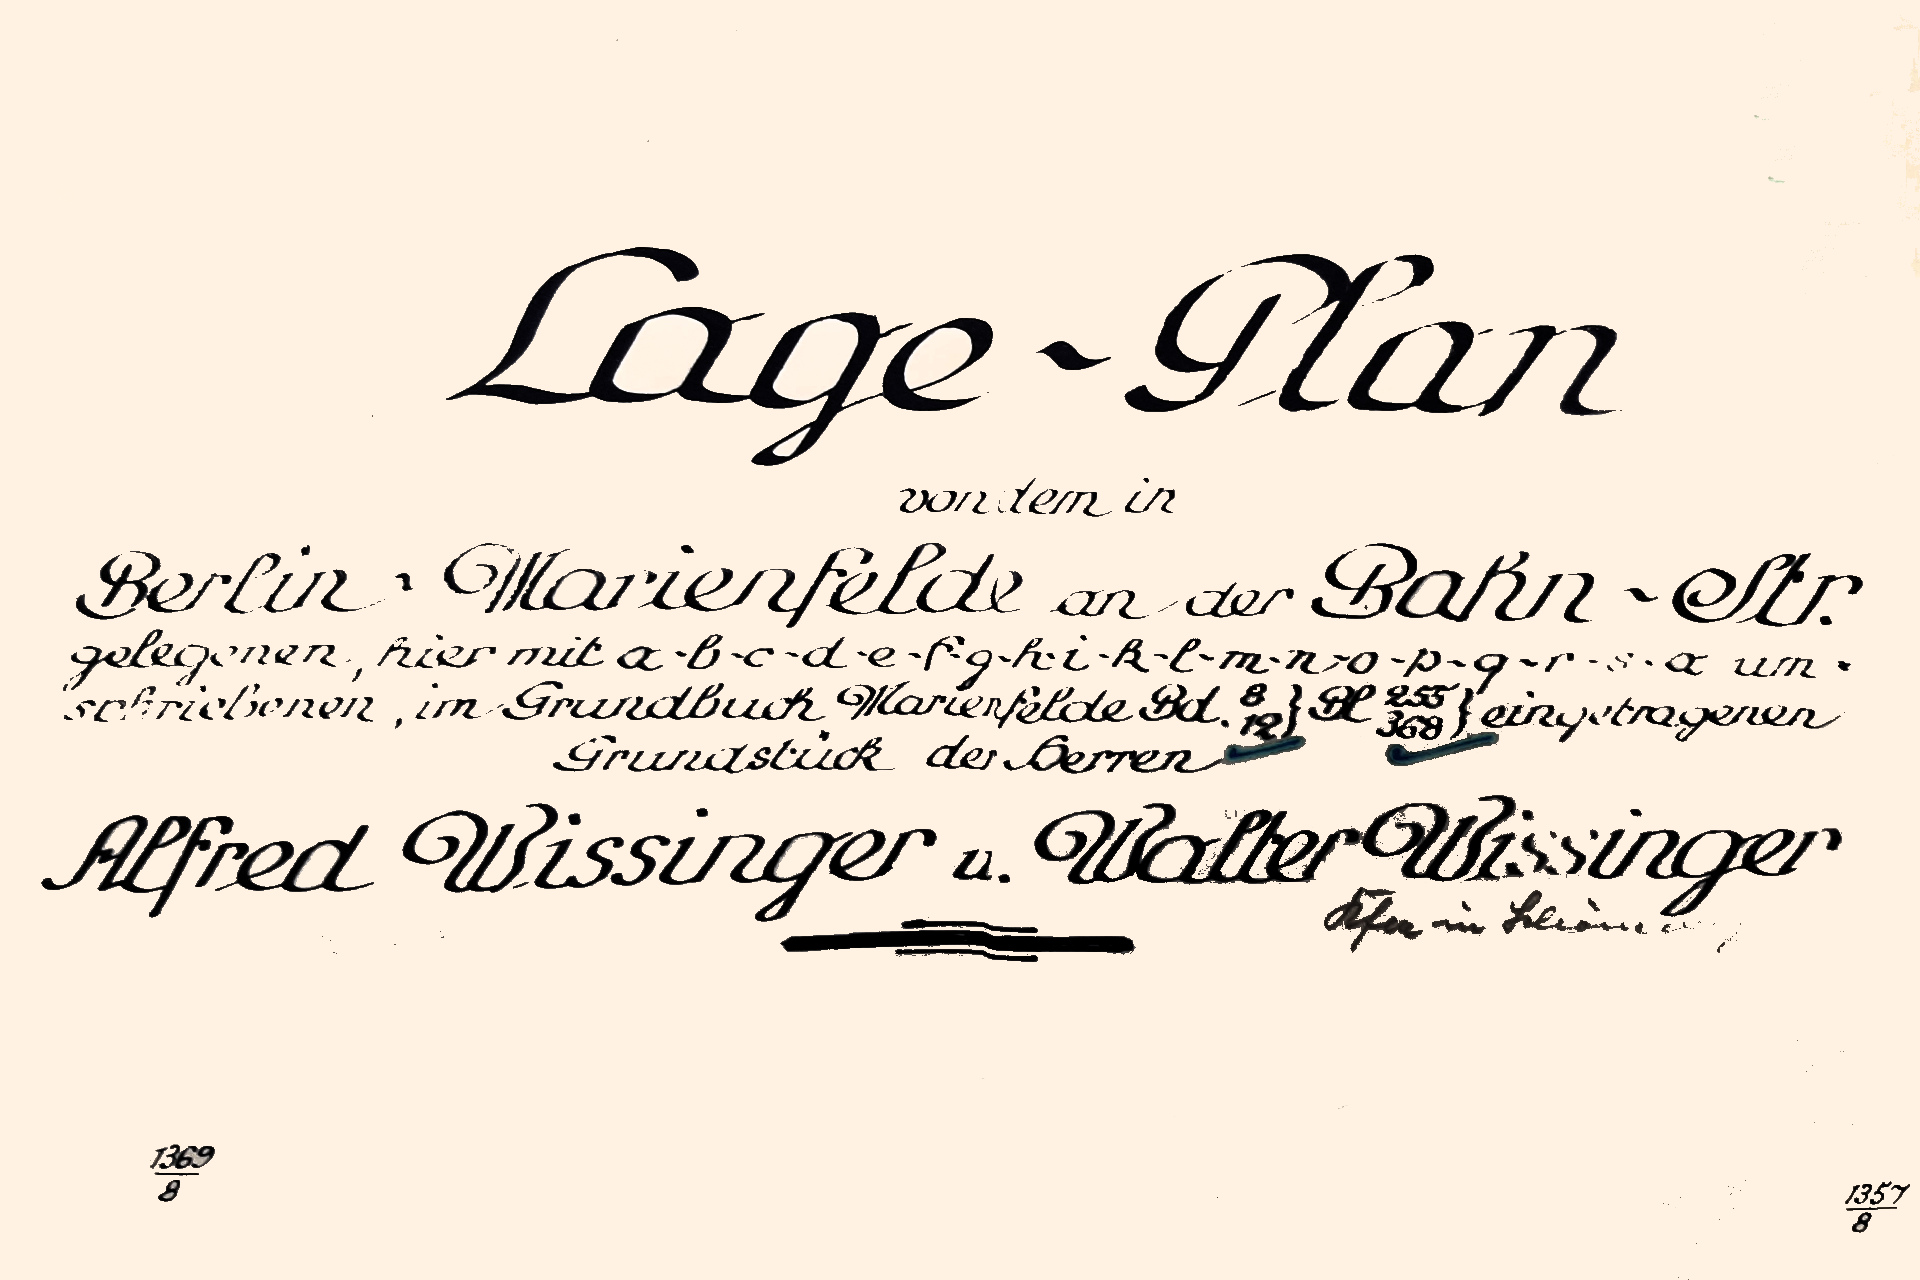 Lage-Plan
von dem in
Berlin-Marienfelde an der Bahn-Str.
gelegenen, hier mit a-b-c-d-e-f-g-h-i-k-l-m-n-o-p-q-r-s-a um-
schriebenen, im Grundbuch Marienfelde Bd. 8 12} Bl 255 368} eingetragenen
Grundstück der Herren
Alfred Wissinger u. Walter Wissinger
in
1369
8
1357
8